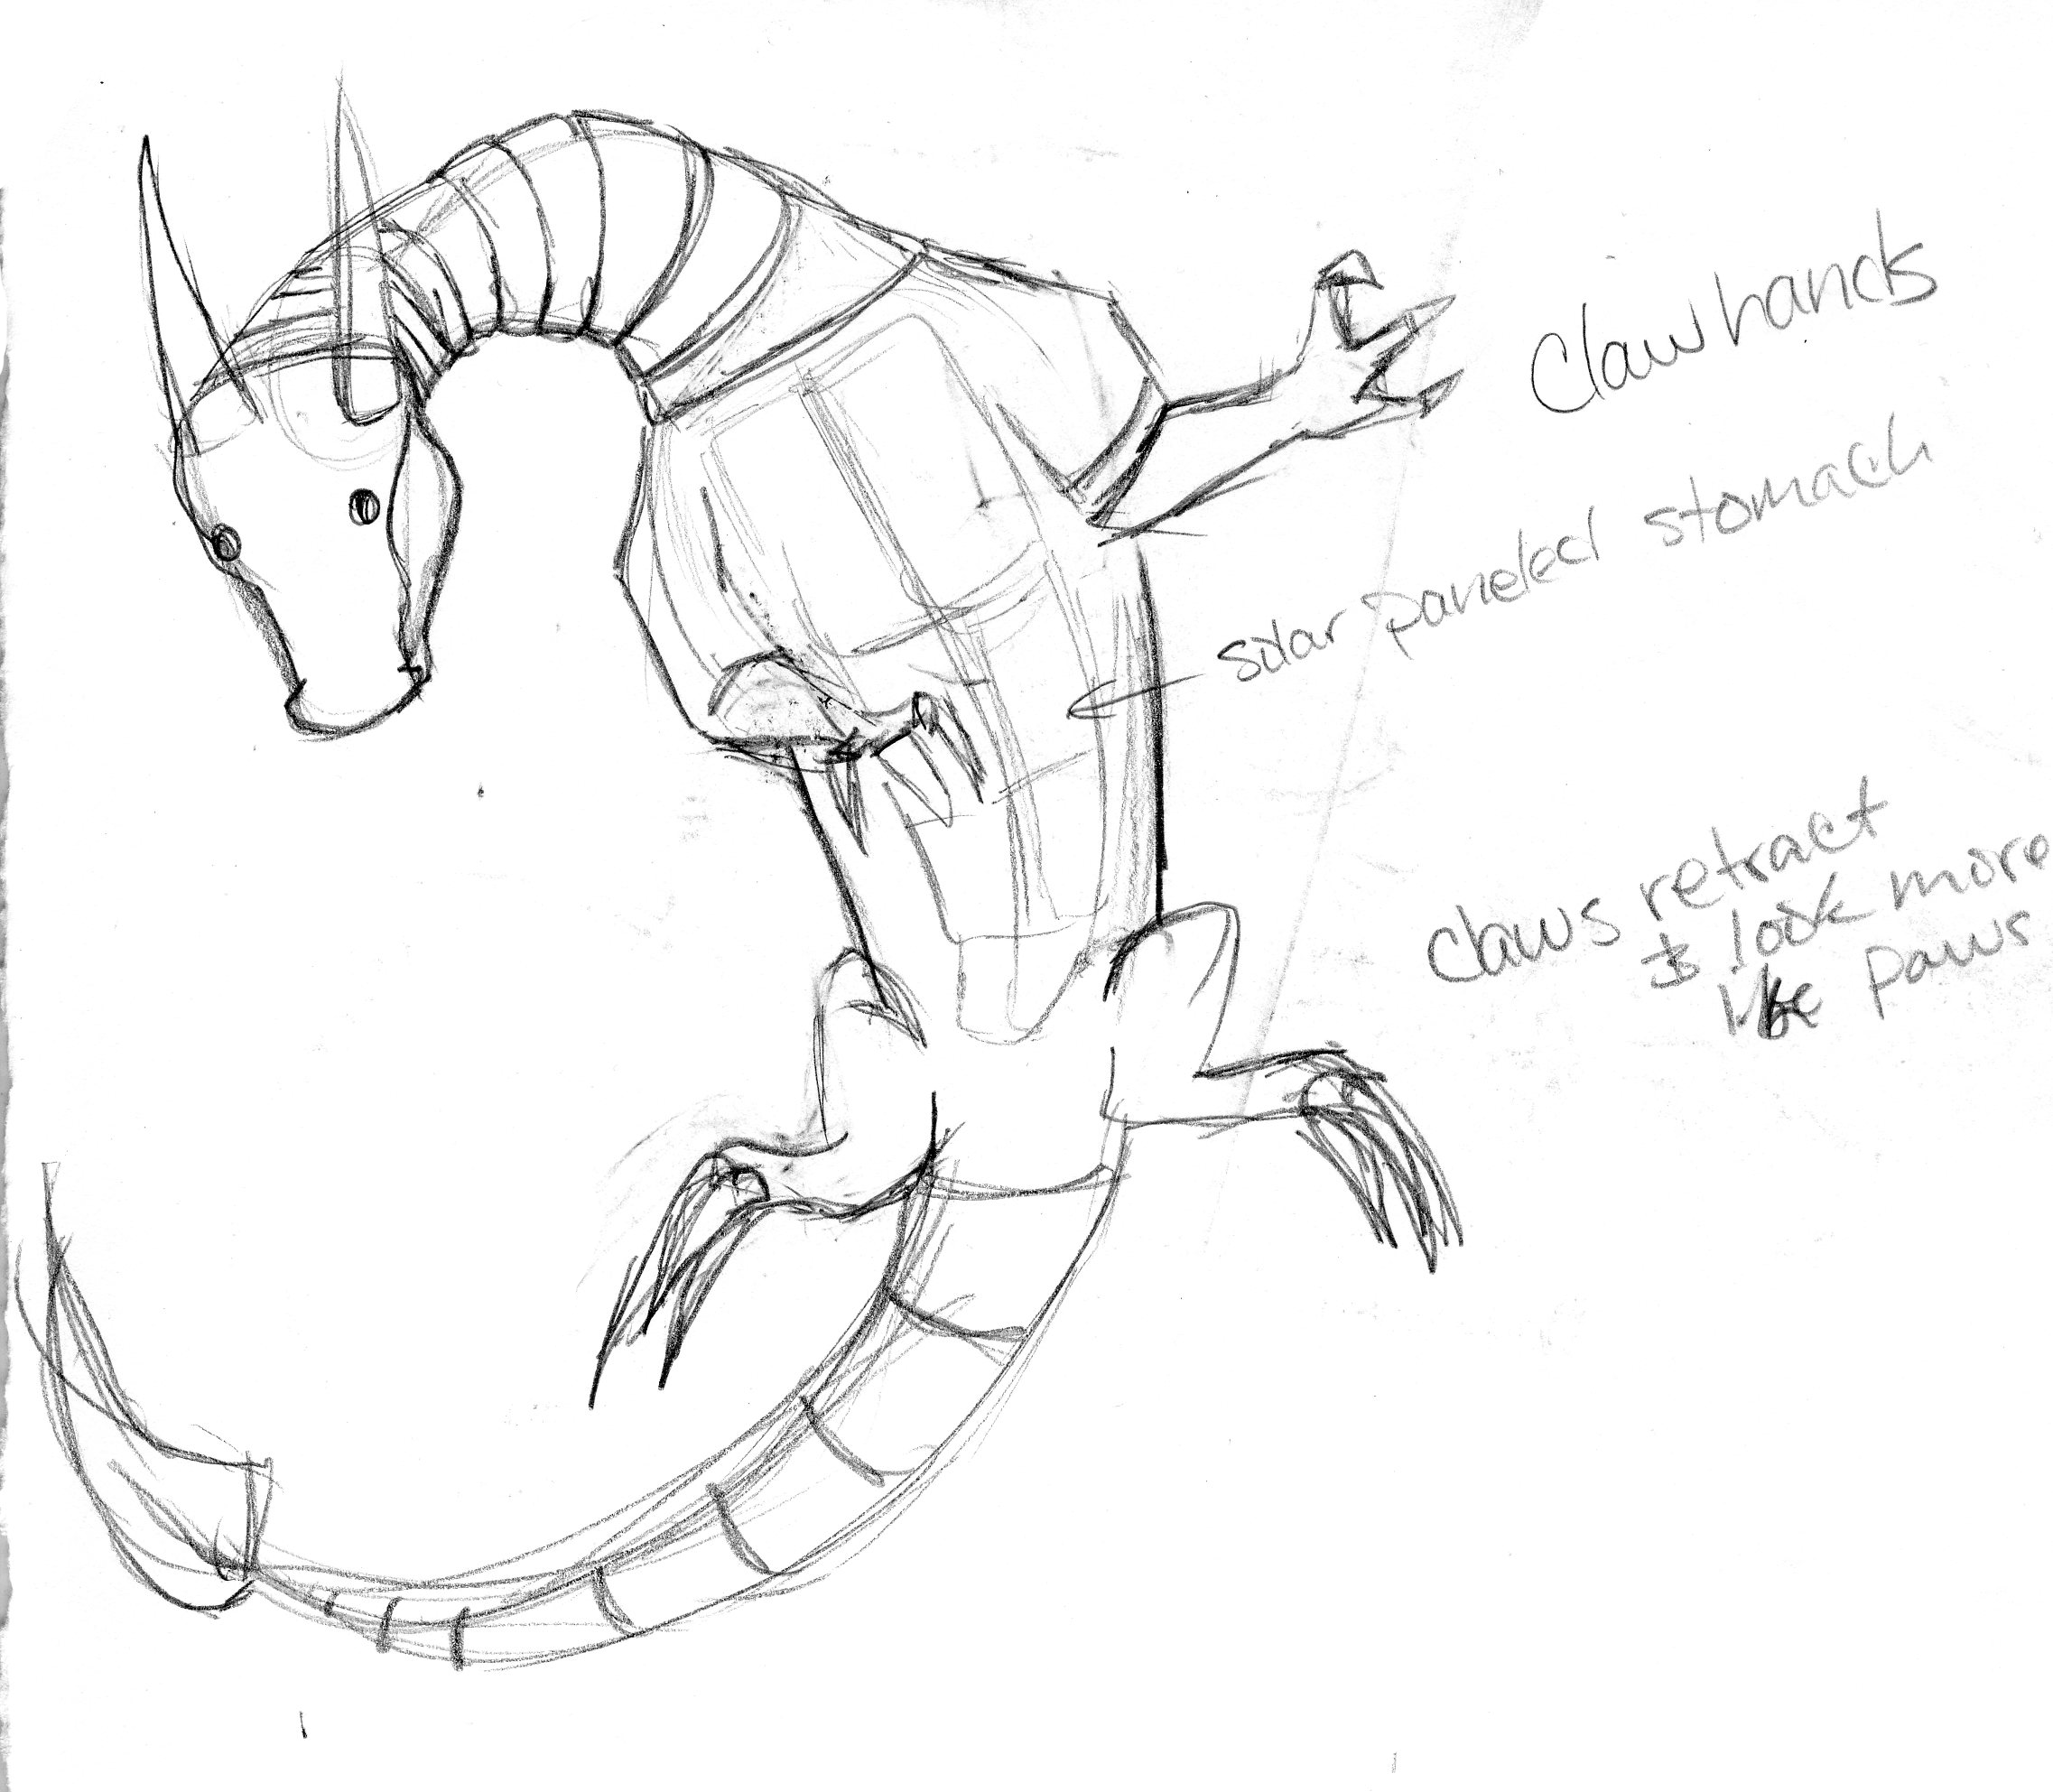 Clawhands
solar paneled stomach
claws retract
& look more
like paws